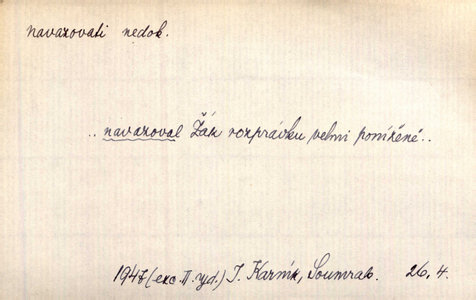 navazovati nedok.
.. navazoval Žák rozprávku velmi poníženě..
1947 (exc. II. vyd.) J. Karník, Soumrak. 26, 4.